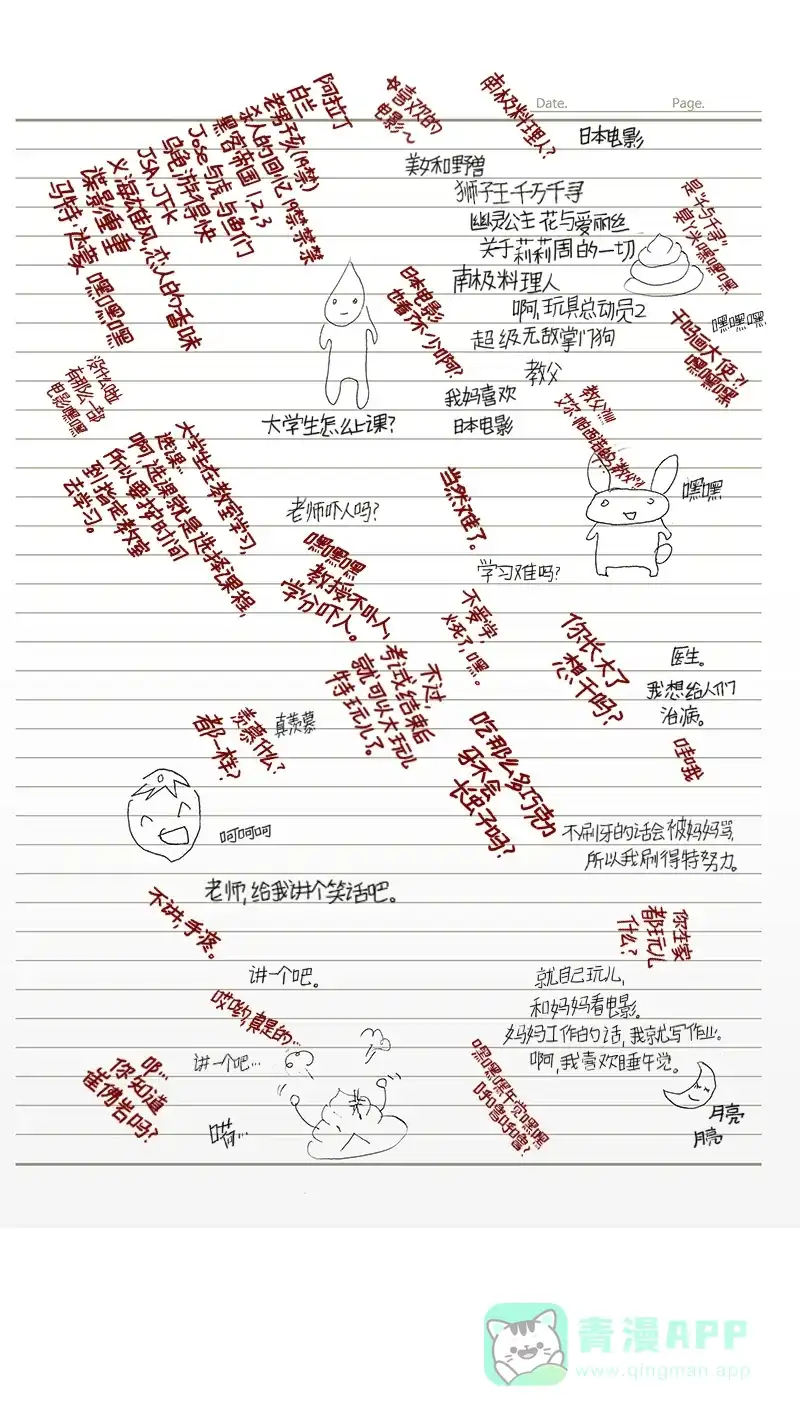 Date.
Page.
☆喜欢的
电影~
阿拉丁
白兰
老男孩(19禁)
杀人的回忆 19禁禁禁
黑客帝国 1,2,3
Jose与虎与鱼们
乌龟游得快
JSA, JFK
义海雄风,恋人的香味
谍影重重
马特·达蒙 嘿嘿嘿
南极料理人?
日本电影
美女和野兽
狮子王 千万千寻
幽灵公主 花与爱丽丝
关于莉莉周的一切
南极料理人
啊,玩具总动员2
超级无敌掌门狗
教父
我妈喜欢
日本电影
是"千与千寻"
臭丫头嘿嘿嘿
嘿嘿嘿
干吗画大便?!
嘿嘿嘿
日本电影
也看了不少啊?
教父!!!
没什么啦
有那么一部
电影嘿嘿
大学生怎么上课?
大学生在教室学习,
选课…
啊,选课就是选择课程,
所以要按时间
到指定教室
去学习。
老师吓人吗?
嘿嘿嘿
教授不吓人,
学分吓人。
嘿嘿
学习难吗?
当然难了。
不爱学,
火死了,嘿。
不过,
考试结束后
就可以大玩儿
特玩儿了。
真羡慕
羡慕什么?
都一样?
呵呵呵
你长大了
想干吗?
医生。
我想给人们
治病。
哇哦
吃那么多巧克力
牙不会
长虫子吗?
不刷牙的话会被妈妈骂,
所以我刷得特努力。
老师,给我讲个笑话吧。
不讲,手疼。
讲一个吧。
哎哟,真是的…
讲一个吧…
你知道
崔例岩吗?
嗬…
你在家
都玩儿
什么?
就自己玩儿,
和妈妈看电影。
妈妈工作的话,我就写作业。
啊,我喜欢睡午觉。
嘿嘿嘿午觉嘿嘿
呼噜呼噜?
月亮
月亮
青漫APP
www.qingman.app